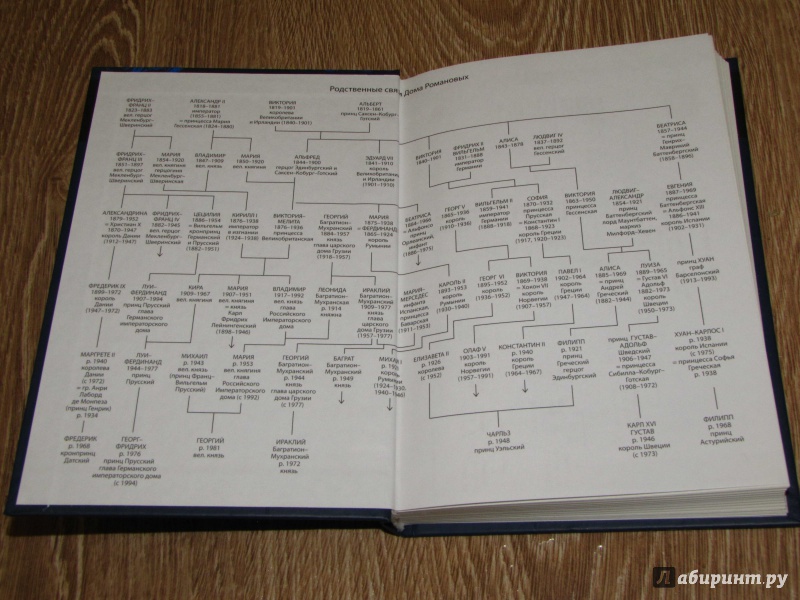 Родственные связи Дома Романовых
ФРИДРИХ-
ФРАНЦ II
1823–1883
вел. герцог
Мекленбург-
Шверинский
АЛЕКСАНДР II
1818–1881
император
(1855–1881)
= принцесса Мария
Гессенская (1824–1880)
ВИКТОРИЯ
1819–1901
королева
Великобритании
и Ирландии (1840–1901)
АЛЬБЕРТ
1819–1861
принц Саксен-Кобург-
Готский
ФРИДРИХ-
ФРАНЦ III
1851–1897
вел. герцог
Мекленбург-
Шверинский
МАРИЯ
1854–1920
вел. княгиня
Мекленбург-
Шверинская
ВЛАДИМИР
1847–1909
вел. князь
МАРИЯ
1853–1920
вел. княжна
АЛЬФРЕД
1844–1900
герцог Эдинбургский и
Саксен-Кобург-Готский
ЭДУАРД VII
1841–1910
король
Великобритании
и Ирландии
(1901–1910)
АЛЕКСАНДРИНА
1879–1952
= Христиан X
1870–1947
король Дании
(1912–1947)
ФРИДРИХ-
ФРАНЦ IV
1882–1945
вел. герцог
Мекленбург-
Шверинский
ЦЕЦИЛИЯ
1886–1954
= Вильгельм
кронпринц
Германский
и Прусский
(1882–1951)
КИРИЛЛ I
1876–1938
император
в изгнании
(1924–1938)
ВИКТОРИЯ-
МЕЛИТА
1876–1936
принцесса
Великобританская
ГЕОРГИЙ
Багратион-
Мухранский
1884–1957
князь
глава царского
дома Грузии
(1918–1957)
МАРИЯ
1875–1938
= ФЕРДИНАНД
1865–1924
король
Румынии
ФРЕДЕРИК IX
1899–1972
король
Дании
(1947–1972)
ЛУИ-
ФЕРДИНАНД
1907–1994
принц Прусский
глава
Германского
императорского
дома
КИРА
1909–1967
вел. княжна
МАРИЯ
1907–1951
вел. княгиня
= князь
Карл
Фридрих
Лейнингенский
(1898–1946)
ВЛАДИМИР
1917–1992
вел. князь
глава
Российского
Императорского
дома
ЛЕОНИДА
Багратион-
Мухранская
р. 1914
княгиня
ИРАКЛИЙ
Багратион-
Мухранский
1909–1977
князь
глава
царского
дома Грузии
(1957–1977)
МАРГРЕТЕ II
р. 1940
королева
Дании
(с 1972)
= гр. Анри
Лаборд
де Монпеза
(принц Генрик)
р. 1934
ЛУИ-
ФЕРДИНАНД
1944–1977
принц
Прусский
МИХАИЛ
р. 1943
вел. князь
(принц Франц-
Вильгельм
Прусский)
МАРИЯ
р. 1953
вел. княгиня
глава
Российского
Императорского
дома (с 1992)
ГЕОРГИЙ
Багратион-
Мухранский
р. 1944
князь
глава царского
дома Грузии
(с 1977)
БАГРАТ
Багратион-
Мухранский
р. 1949
князь
р. 1921
король
Румынии
ФРЕДЕРИК
р. 1968
кронпринц
Датский
ГЕОРГ-
ФРИДРИХ
р. 1976
принц Прусский
глава Германского
императорского дома
(с 1994)
ГЕОРГИЙ
р. 1981
вел. князь
ИРАКЛИЙ
Багратион-
Мухранский
р. 1972
князь
ВИКТОРИЯ
1840–1901
ФРИДРИХ II
ВИЛЬГЕЛЬМ
1831–1888
император
Германии
АЛИСА
1843–1878
ЛЮДВИГ IV
1837–1892
вел. герцог
Гессенский
БЕАТРИСА
1857–1944
= принц
Генрих-
Маврикий
Баттенбергский
(1858–1896)
БЕАТРИСА
1884–1966
= Альфонсо
принц
Орлеанский
инфант
(1886–1975)
ГЕОРГ V
1865–1936
король
(1910–1936)
ВИЛЬГЕЛЬМ II
1859–1941
император
Германии
(1888–1918)
СОФИЯ
1870–1932
принцесса
Прусская
= Константин I
1868–1923
король Греции
(1917, 1920–1923)
ВИКТОРИЯ
1863–1950
принцесса
Гессенская
ЛЮДВИГ-
АЛЕКСАНДР
1854–1921
принц
Баттенбергский
лорд Маунтбаттен,
маркиз
Милфорд-Хейвен
ЕВГЕНИЯ
1887–1969
принцесса
Баттенбергская
= Альфонс XIII
1886–1941
король Испании
(1902–1931)
МАРИЯ-
МЕРСЕДЕС
Испанская
принцесса
Баварская
(1911–1953)
КАРОЛЬ II
1893–1953
король
Румынии
(1930–1940)
ГЕОРГ VI
1895–1952
король
(1936–1952)
ВИКТОРИЯ
1869–1938
= Хокон VII
король
Норвегии
(1905–1957)
ПАВЕЛ I
1902–1964
король
Греции
(1947–1964)
АЛИСА
1885–1969
= принц
Андрей
Греческий
(1882–1944)
ЛУИЗА
1889–1965
= Густав VI
Адольф
1882–1973
король
Швеции
(1950–1973)
принц ХУАН
граф
Барселонский
(1913–1993)
ЕЛИЗАВЕТА II
р. 1926
королева
(с 1952)
ОЛАФ V
1903–1991
король
Норвегии
(1957–1991)
КОНСТАНТИН II
р. 1940
король
Греции
(1964–1967)
ФИЛИПП
р. 1921
принц
Греческий
герцог
Эдинбургский
принц ГУСТАВ-
АДОЛЬФ
Шведский
1906–1947
= принцесса
Сибилла-Кобург-
Готская
(1908–1972)
ХУАН-КАРЛОС I
р. 1938
король Испании
(с 1975)
= принцесса Софья
Греческая
р. 1938
ЧАРЛЬЗ
р. 1948
принц Уэльский
КАРЛ XVI
ГУСТАВ
р. 1946
король Швеции
(с 1973)
ФИЛИПП
р. 1968
принц
Астурийский
Лабиринт.ру